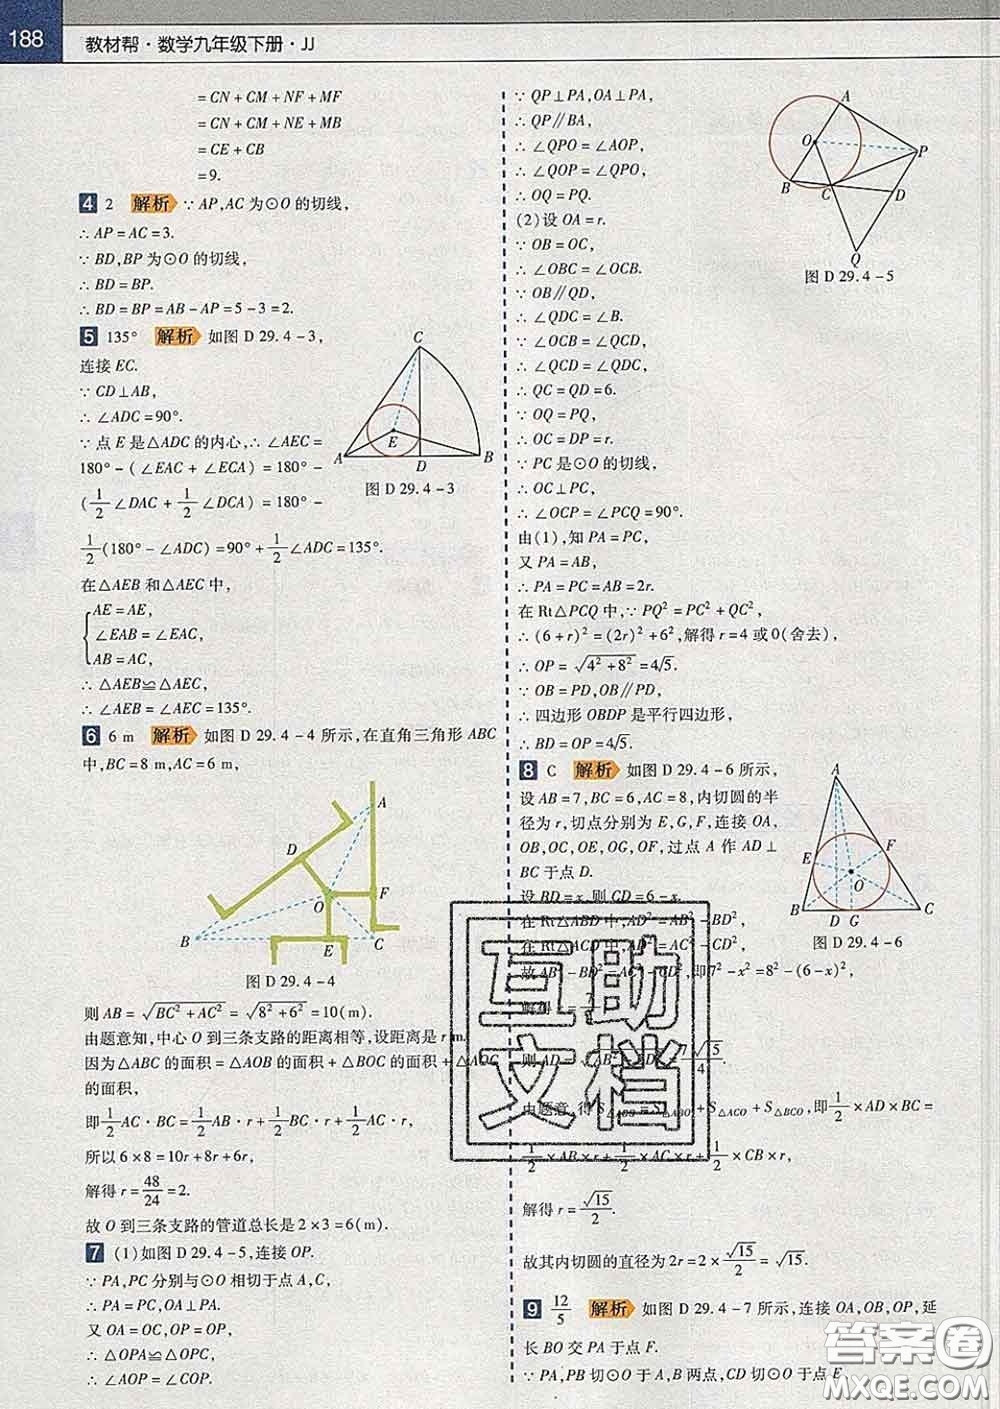 188 教材帮·数学九年级下册·JJ
= CN + CM + NF + MF
= CN + CM + NE + MB
= CE + CB
= 9.
4 2 解析 ∵ AP,AC 为⊙O 的切线,
∴ AP = AC = 3.
∵ BD,BP 为⊙O 的切线,
∴ BD = BP.
∴ BD = BP = AB - AP = 5 - 3 = 2.
5 135° 解析 如图 D 29.4-3,
连接 EC.
∵ CD⊥AB,
∴ ∠ADC = 90°.
∵ 点 E 是△ADC 的内心,∴ ∠AEC =
180° - (∠EAC + ∠ECA) = 180° -
(1/2∠DAC + 1/2∠DCA) = 180° -
1/2(180° - ∠ADC) = 90° + 1/2∠ADC = 135°.
在△AEB 和△AEC 中,
AE = AE,
∠EAB = ∠EAC,
AB = AC,
∴ △AEB≌△AEC,
∴ ∠AEB = ∠AEC = 135°.
C
E
A
D
B
图 D 29.4-3
6 6 m 解析 如图 D 29.4-4 所示,在直角三角形 ABC
中,BC = 8 m,AC = 6 m,
A
D
O
F
B
E
C
图 D 29.4-4
则 AB = √(BC² + AC²) = √(8² + 6²) = 10(m).
由题意知,中心 O 到三条支路的距离相等,设距离是 r m.
因为△ABC 的面积 = △AOB 的面积 + △BOC 的面积 + △AOC
的面积,
即1/2AC·BC = 1/2AB·r + 1/2BC·r + 1/2AC·r,
所以 6×8 = 10r + 8r + 6r,
解得 r = 48/24 = 2.
故 O 到三条支路的管道总长是 2×3 = 6(m).
7 (1)如图 D 29.4-5,连接 OP.
∵ PA,PC 分别与⊙O 相切于点 A,C,
∴ PA = PC,OA⊥PA.
又 OA = OC,OP = OP,
∴ △OPA≌△OPC,
∴ ∠AOP = ∠COP.
∵ QP⊥PA,OA⊥PA,
∴ QP∥BA,
∴ ∠QPO = ∠AOP,
∴ ∠QOP = ∠QPO,
∴ OQ = PQ.
(2)设 OA = r.
∵ OB = OC,
∴ ∠OBC = ∠OCB.
∵ OB∥QD,
∴ ∠QDC = ∠B.
∵ ∠OCB = ∠QCD,
∴ ∠QCD = ∠QDC,
∴ QC = QD = 6.
∵ OQ = PQ,
∴ OC = DP = r.
∵ PC 是⊙O 的切线,
∴ OC⊥PC,
∴ ∠OCP = ∠PCQ = 90°.
由(1),知 PA = PC,
又 PA = AB,
∴ PA = PC = AB = 2r.
在 Rt△PCQ 中,∵ PQ² = PC² + QC²,
∴ (6 + r)² = (2r)² + 6²,解得 r = 4 或 0(舍去),
∴ OP = √(4² + 8²) = 4√5.
∵ OB = PD,OB∥PD,
∴ 四边形 OBDP 是平行四边形,
∴ BD = OP = 4√5.
A
O
P
B
C
D
Q
图 D 29.4-5
8 C 解析 如图 D 29.4-6 所示,
设 AB = 7,BC = 6,AC = 8,内切圆的半
径为 r,切点分别为 E,G,F,连接 OA,
OB,OC,OE,OG,OF,过点 A 作 AD⊥
BC 于点 D.
设 BD = x,则 CD = 6 - x.
在 Rt△ABD 中,AD² = AB² - BD²,
在 Rt△ACD 中,AD² = AC² - CD²,
故 AB² - BD² = AC² - CD²,即 7² - x² = 8² - (6 - x)²,
解得 x =
则 AD = √(AB² - BD²) = 7√15/4.
由题意,得 S△ABC = S△ABO + S△ACO + S△BCO,即1/2×AD×BC =
1/2×AB×r + 1/2×AC×r + 1/2×CB×r,
解得 r = √15/2.
故其内切圆的直径为 2r = 2×√15/2 = √15.
A
E
F
O
B
D
G
C
图 D 29.4-6
9 12/5 解析 如图 D 29.4-7 所示,连接 OA,OB,OP,延
长 BO 交 PA 于点 F.
∵ PA,PB 切⊙O 于 A,B 两点,CD 切⊙O 于点 E,
互助
文档
答案圈
MXQE.COM